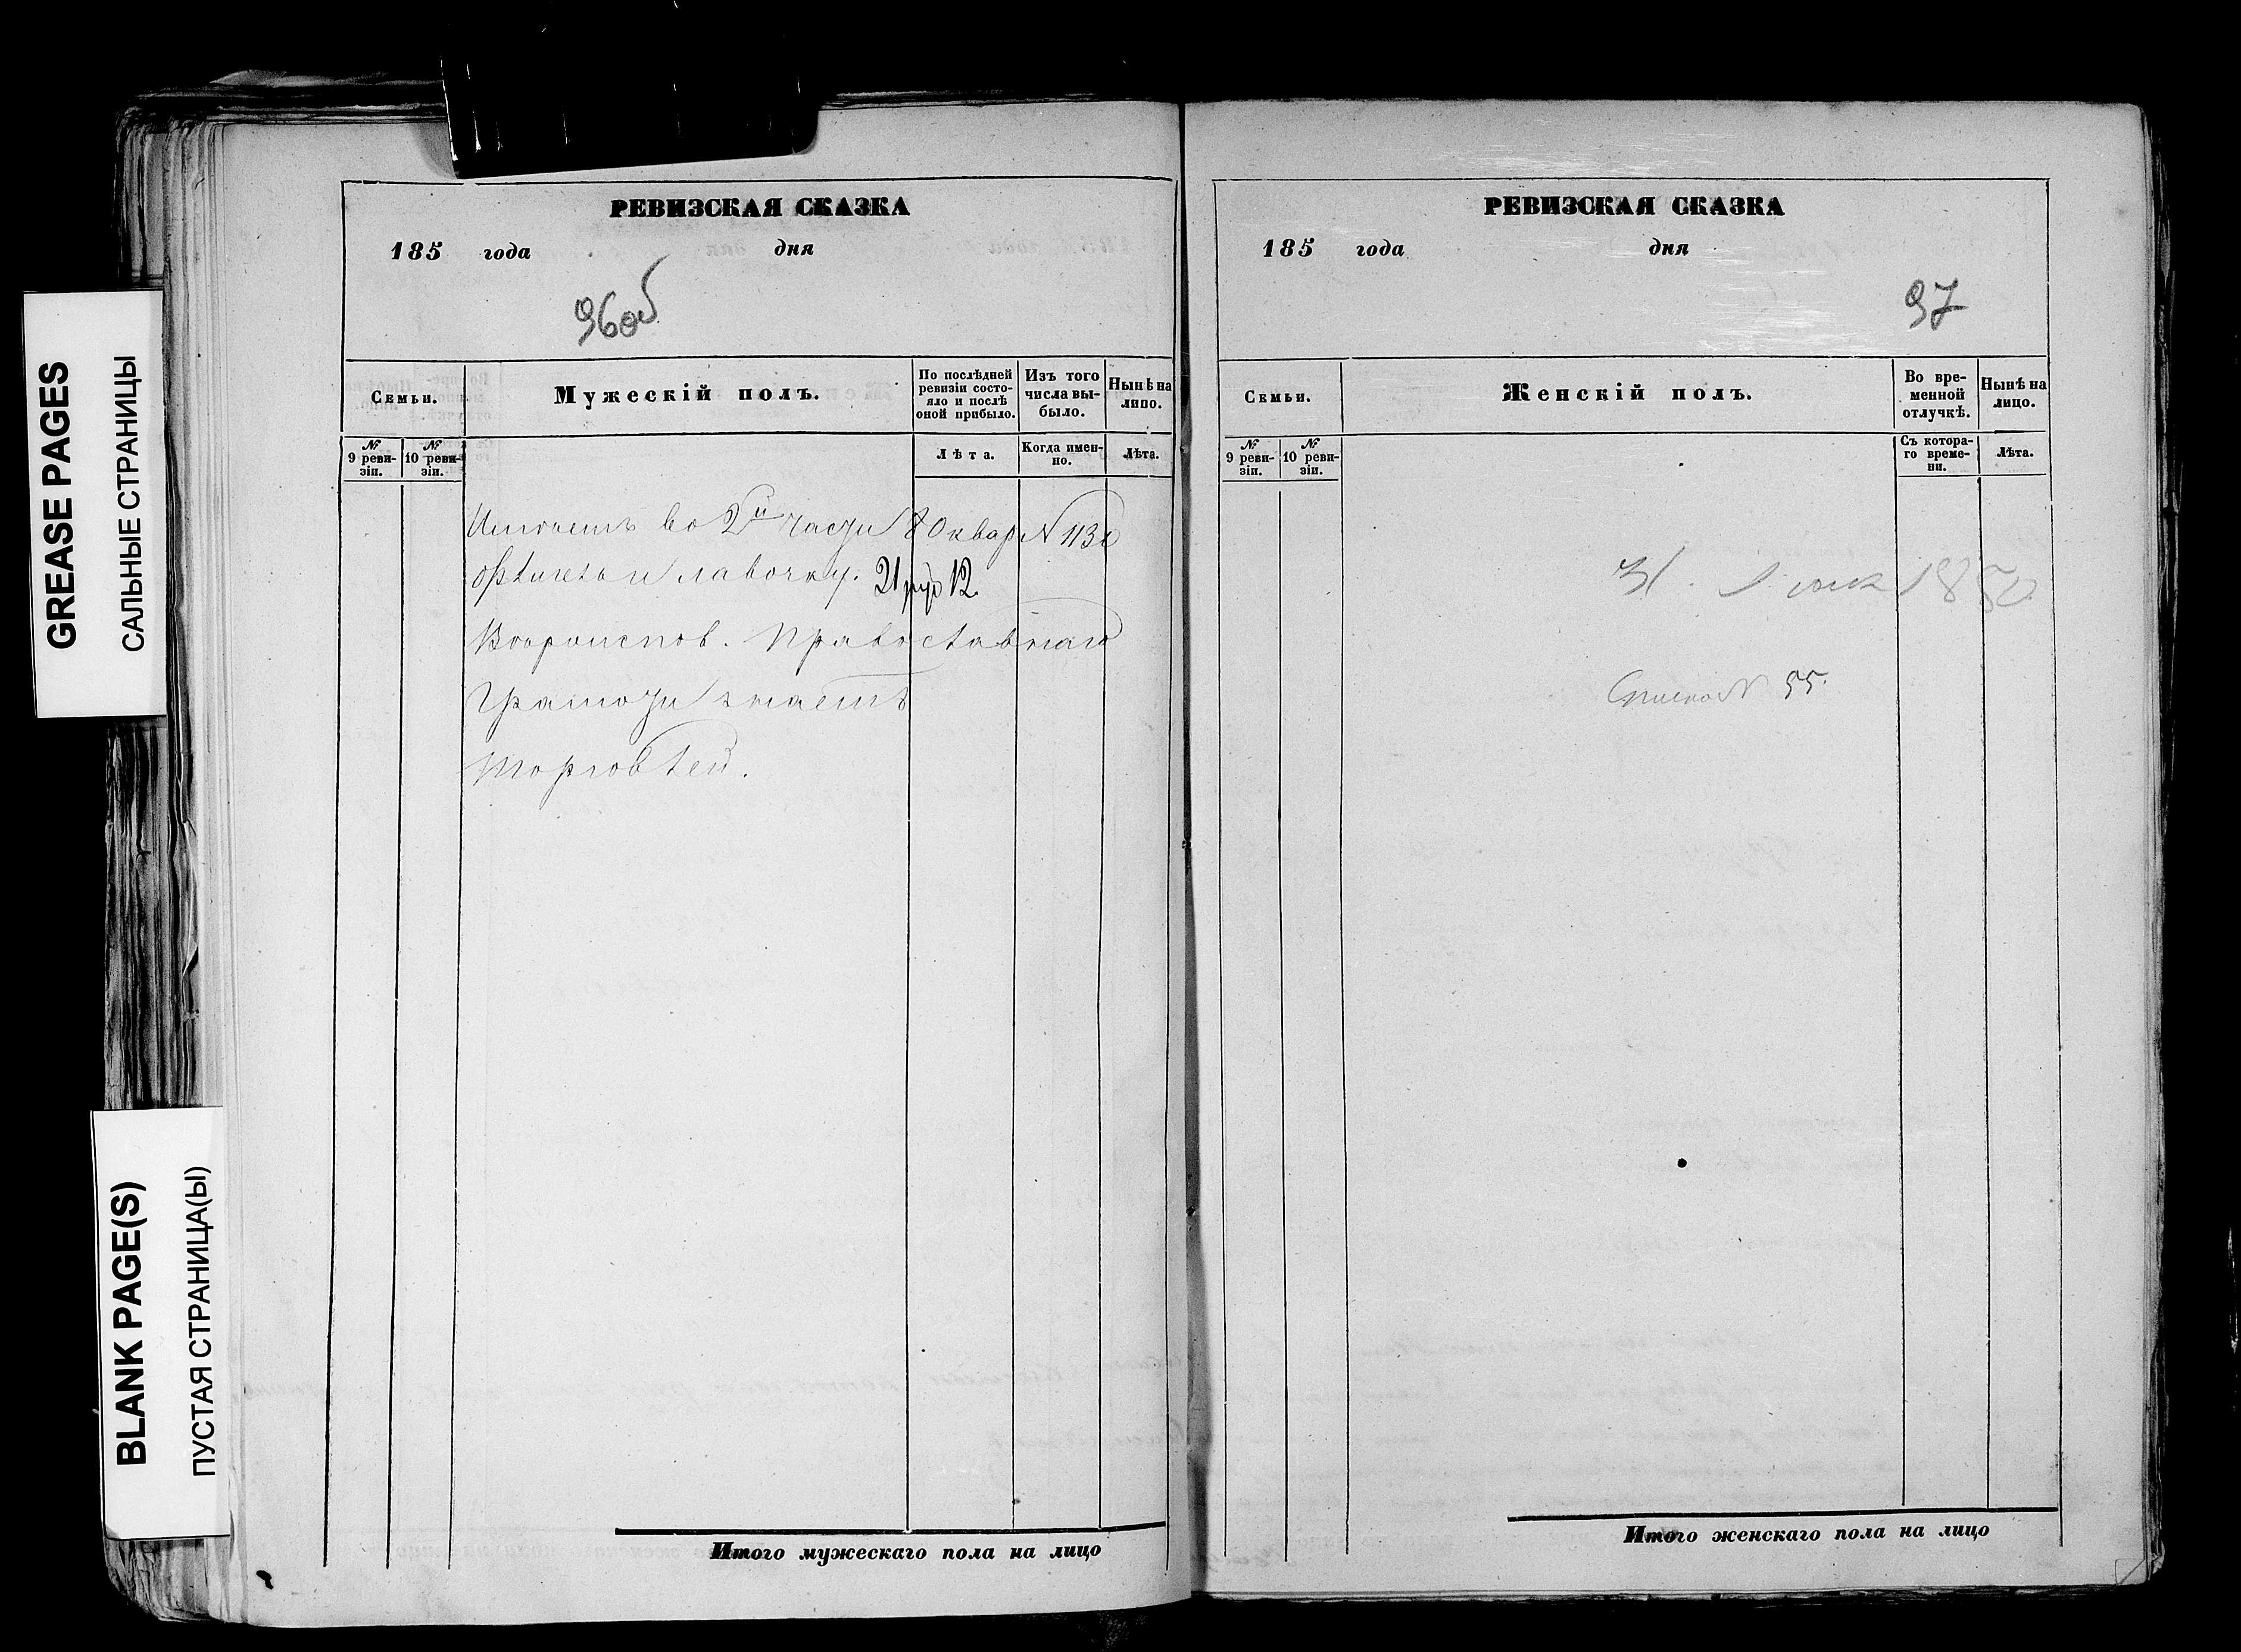 GREASE PAGES
САЛЬНЫЕ СТРАНИЦЫ
BLANK PAGE(S)
ПУСТАЯ СТРАНИЦА(Ы)
РЕВИЗСКАЯ СКАЗКА
185 года дня
96об
Семьи.
Мужескій полъ.
По послѣдней ревизіи состояло и послѣ оной прибыло.
Изъ того числа выбыло.
Нынѣ на лицо.
№ 9 ревизіи.
№ 10 ревизіи.
Лѣта.
Когда именно.
Лѣта.
во 2й части 80 квар N 113
флигель и лавочку. 21 руб 12.
Вѣроисповѣ. Православнаго
Грамоти знаетъ
Торговлей.
Итого мужескаго пола на лицо
РЕВИЗСКАЯ СКАЗКА
185 года дня
97
Семьи.
Женскій полъ.
Во временной отлучкѣ.
Нынѣ на лицо.
№ 9 ревизіи.
№ 10 ревизіи.
Съ котораго времени.
Лѣта.
31. 1850
N 55.
Итого женскаго пола на лицо